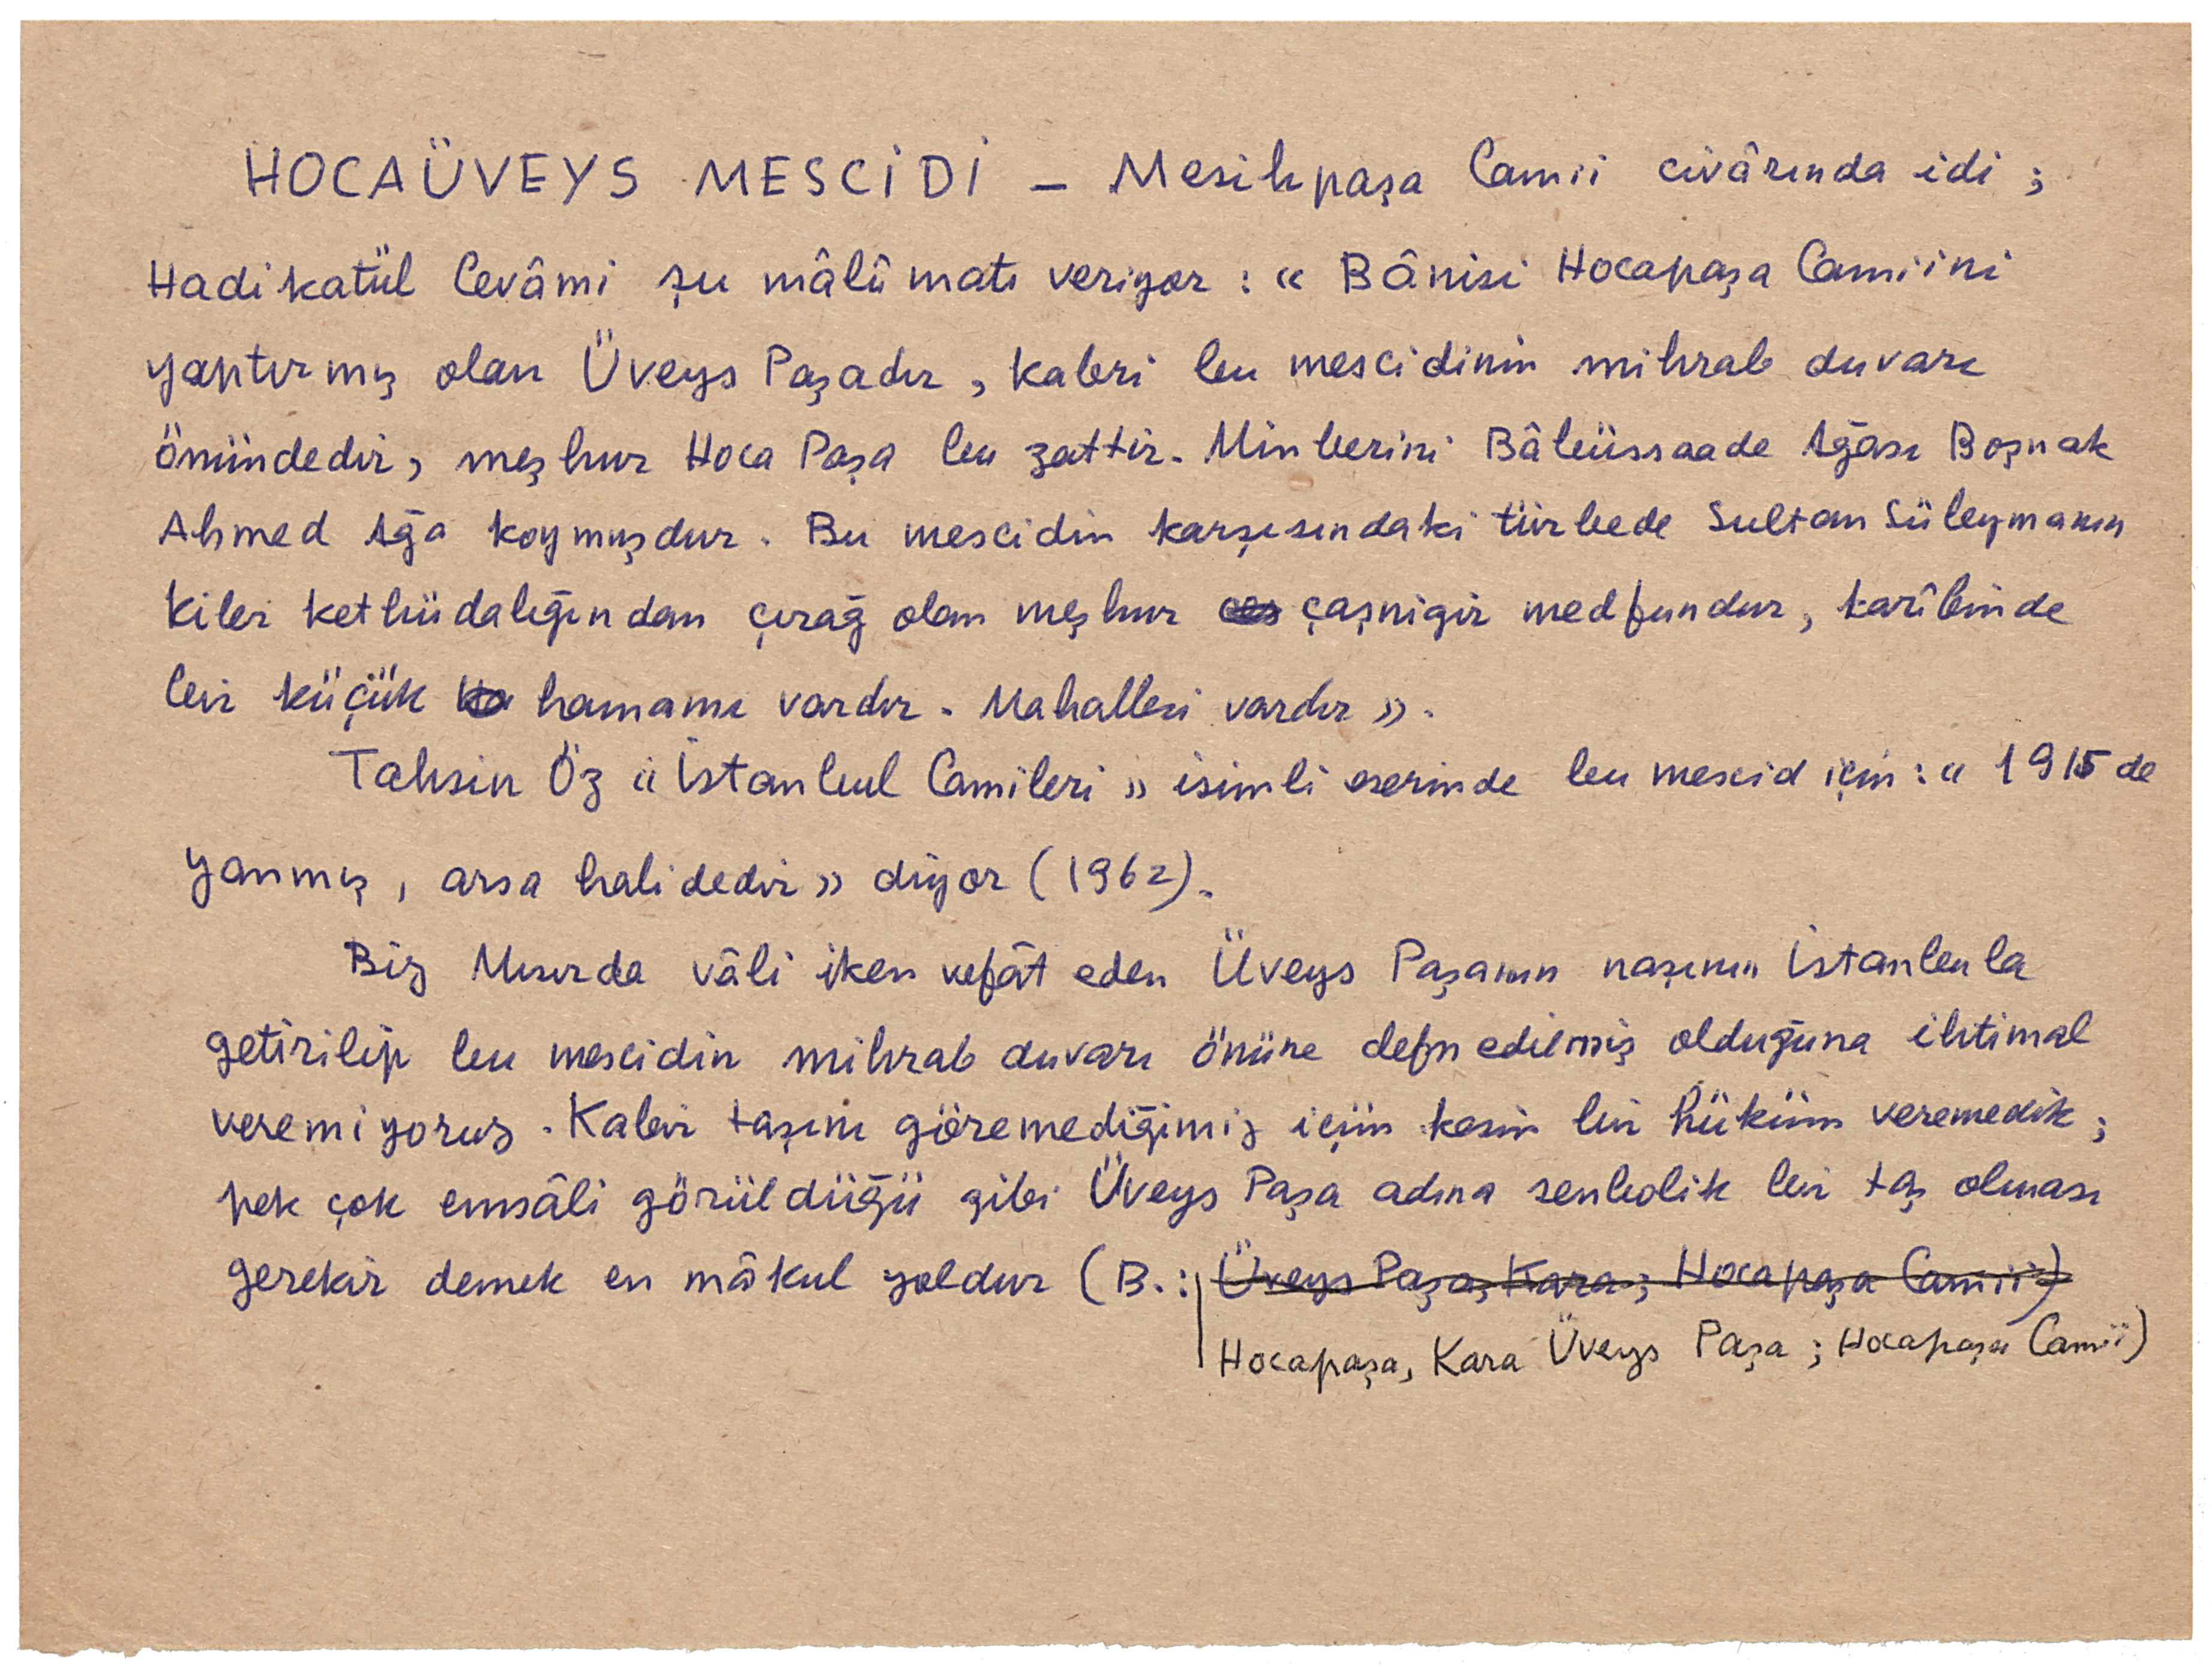 HOCAÜVEYS MESCİDİ — Mesihpaşa Camii civârında idi ;
Hadikatül Cevâmi şu mâlûmatı veriyor : « Bânisi Hocapaşa Camiini
yaptırmış olan Üveys Paşadır , kabri bu mescidinin mihrab duvarı
önündedir, meşhur Hoca Paşa bu zattir. Minberini Bâbüssaade Ağası Boşnak
Ahmed Ağa koymuşdur . Bu mescidin karşısındaki türbede Sultan Süleymanın
Kiler kethüdalığından çırağ olan meşhur çaşnigir medfundur, karîbinde
bir küçük hamamı vardır . Mahallesi vardır ».
Tahsin Öz « İstanbul Camileri » isimli eserinde bu mescid için : « 1915 de
yanmış , arsa halidedir » diyor (1962).
Biz Mısırda vâli iken vefât eden Üveys Paşanın naşının İstanbula
getirilip bu mescidin mihrab duvarı önüne defnedilmiş olduğuna ihtimal
veremiyoruz . Kabir taşını göremediğimiz içün kesin bir hüküm veremedik ;
pek çok emsâli görüldüğü gibi Üveys Paşa adına senbolik bir taş olması
gerekir demek en mâkul yoldur (B. : Üveys Paşa, Kara ; Hocapaşa Camii)
Hocapaşa, Kara Üveys Paşa ; Hocapaşa Camii)